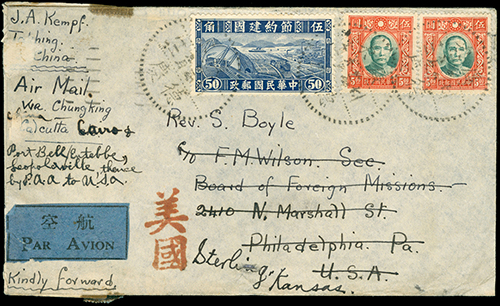 J.A. Kempf.
China
Air Mail
Via Chungking
Calcutta Cairo &
Port Bell/Entebbe,
Leopoldville, thence
by P.A.A to U.S.A.
空 航
PAR AVION
Kindly forward
角 國建約節 伍
50 政郵國民華中 50
圓
5
圓
5
美
國
Rev. S. Boyle
c/o F.M. Wilson. Sec
Board of Foreign Missions.
2410 N. Marshall St.
Philadelphia. Pa.
U.S.A.
Sterling
Kansas.